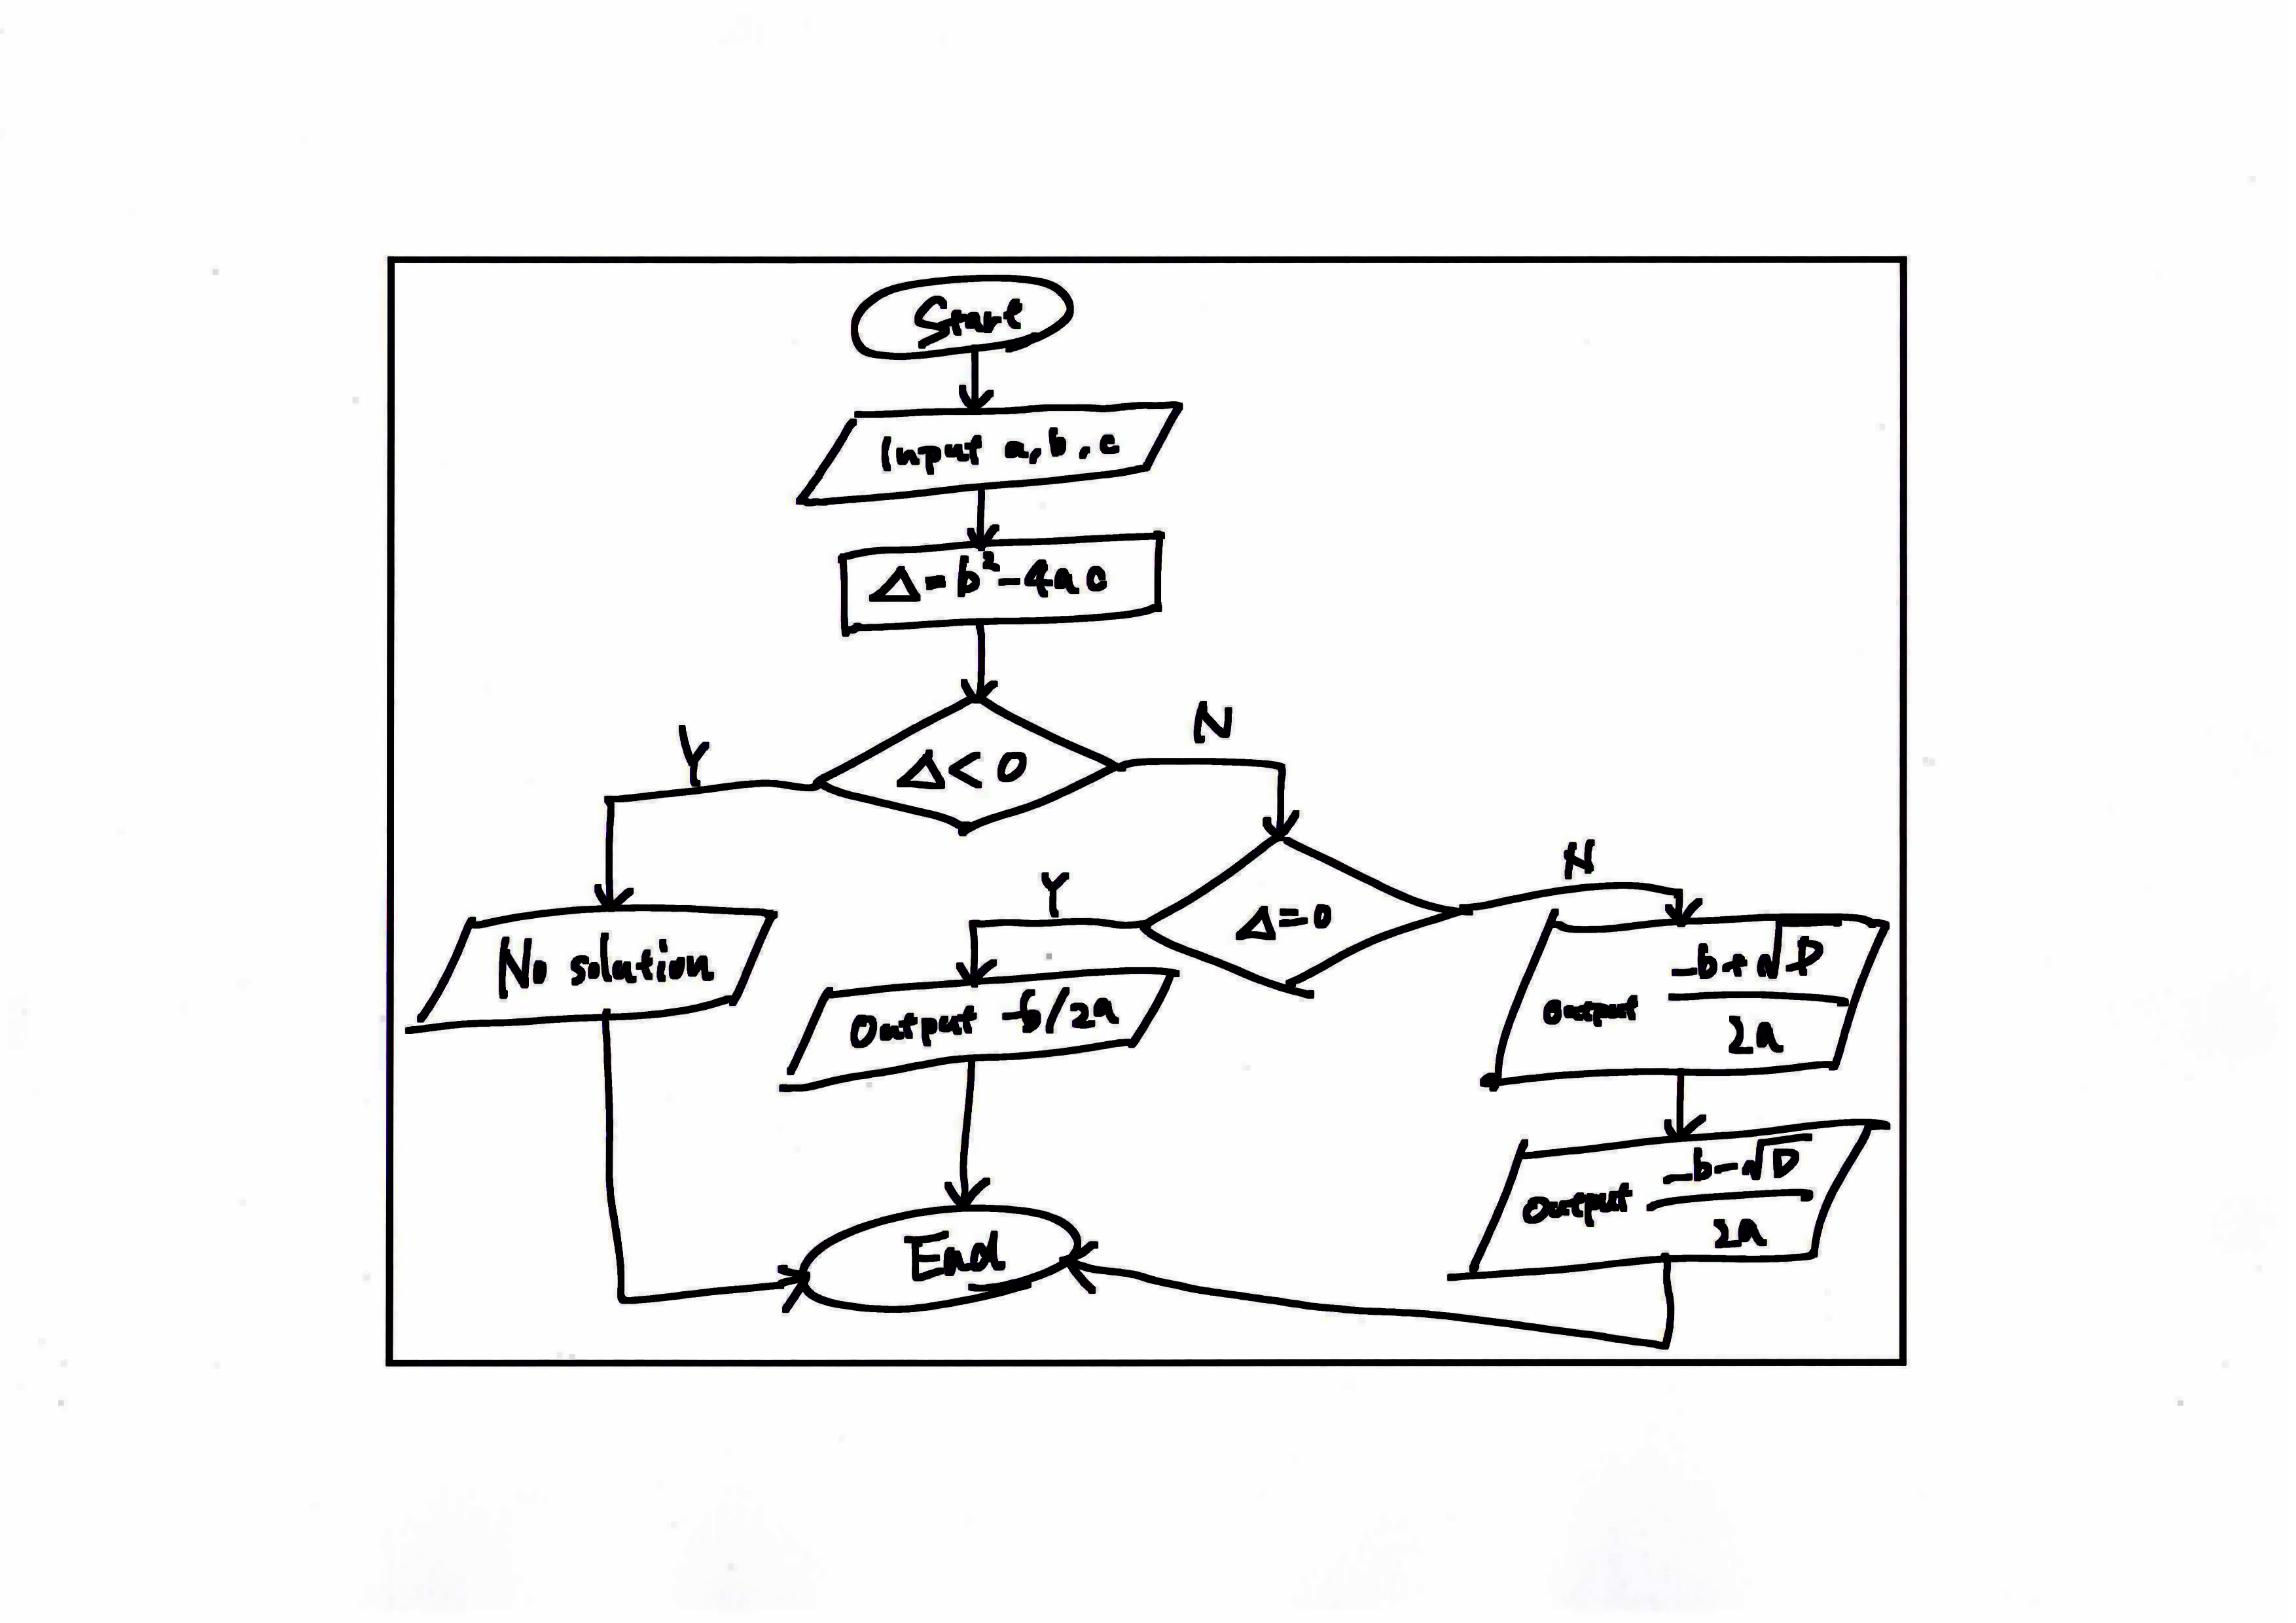 Start
Input a, b, c
Δ=b²-4ac
Δ<0
Y
N
Δ=0
Y
N
No solution
Output -b/2a
Output (-b+√D)/2a
Output (-b-√D)/2a
End